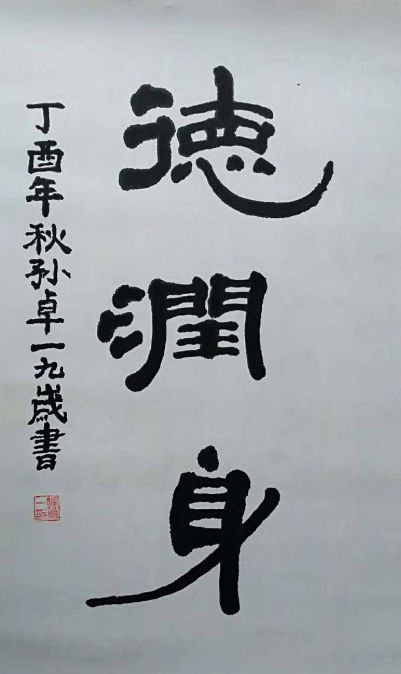 徳潤身
丁酉年秋孙卓一九歲書